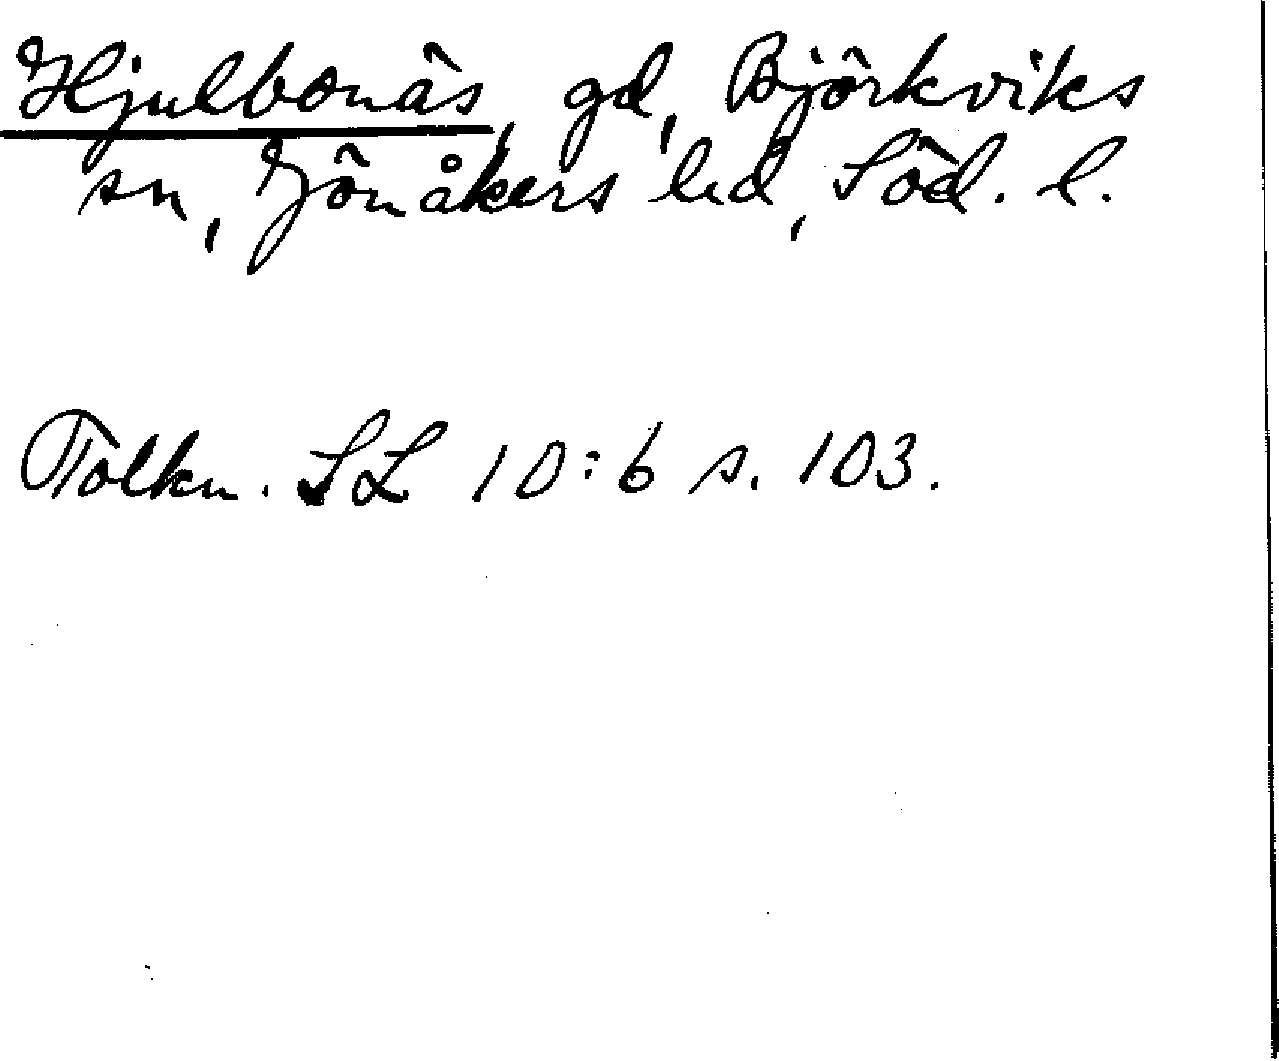 Hjulbonäs, gd, Björkviks
sn, Jönåkers hd, Söd. l.
Tolkn. SL 10:6 s. 103.